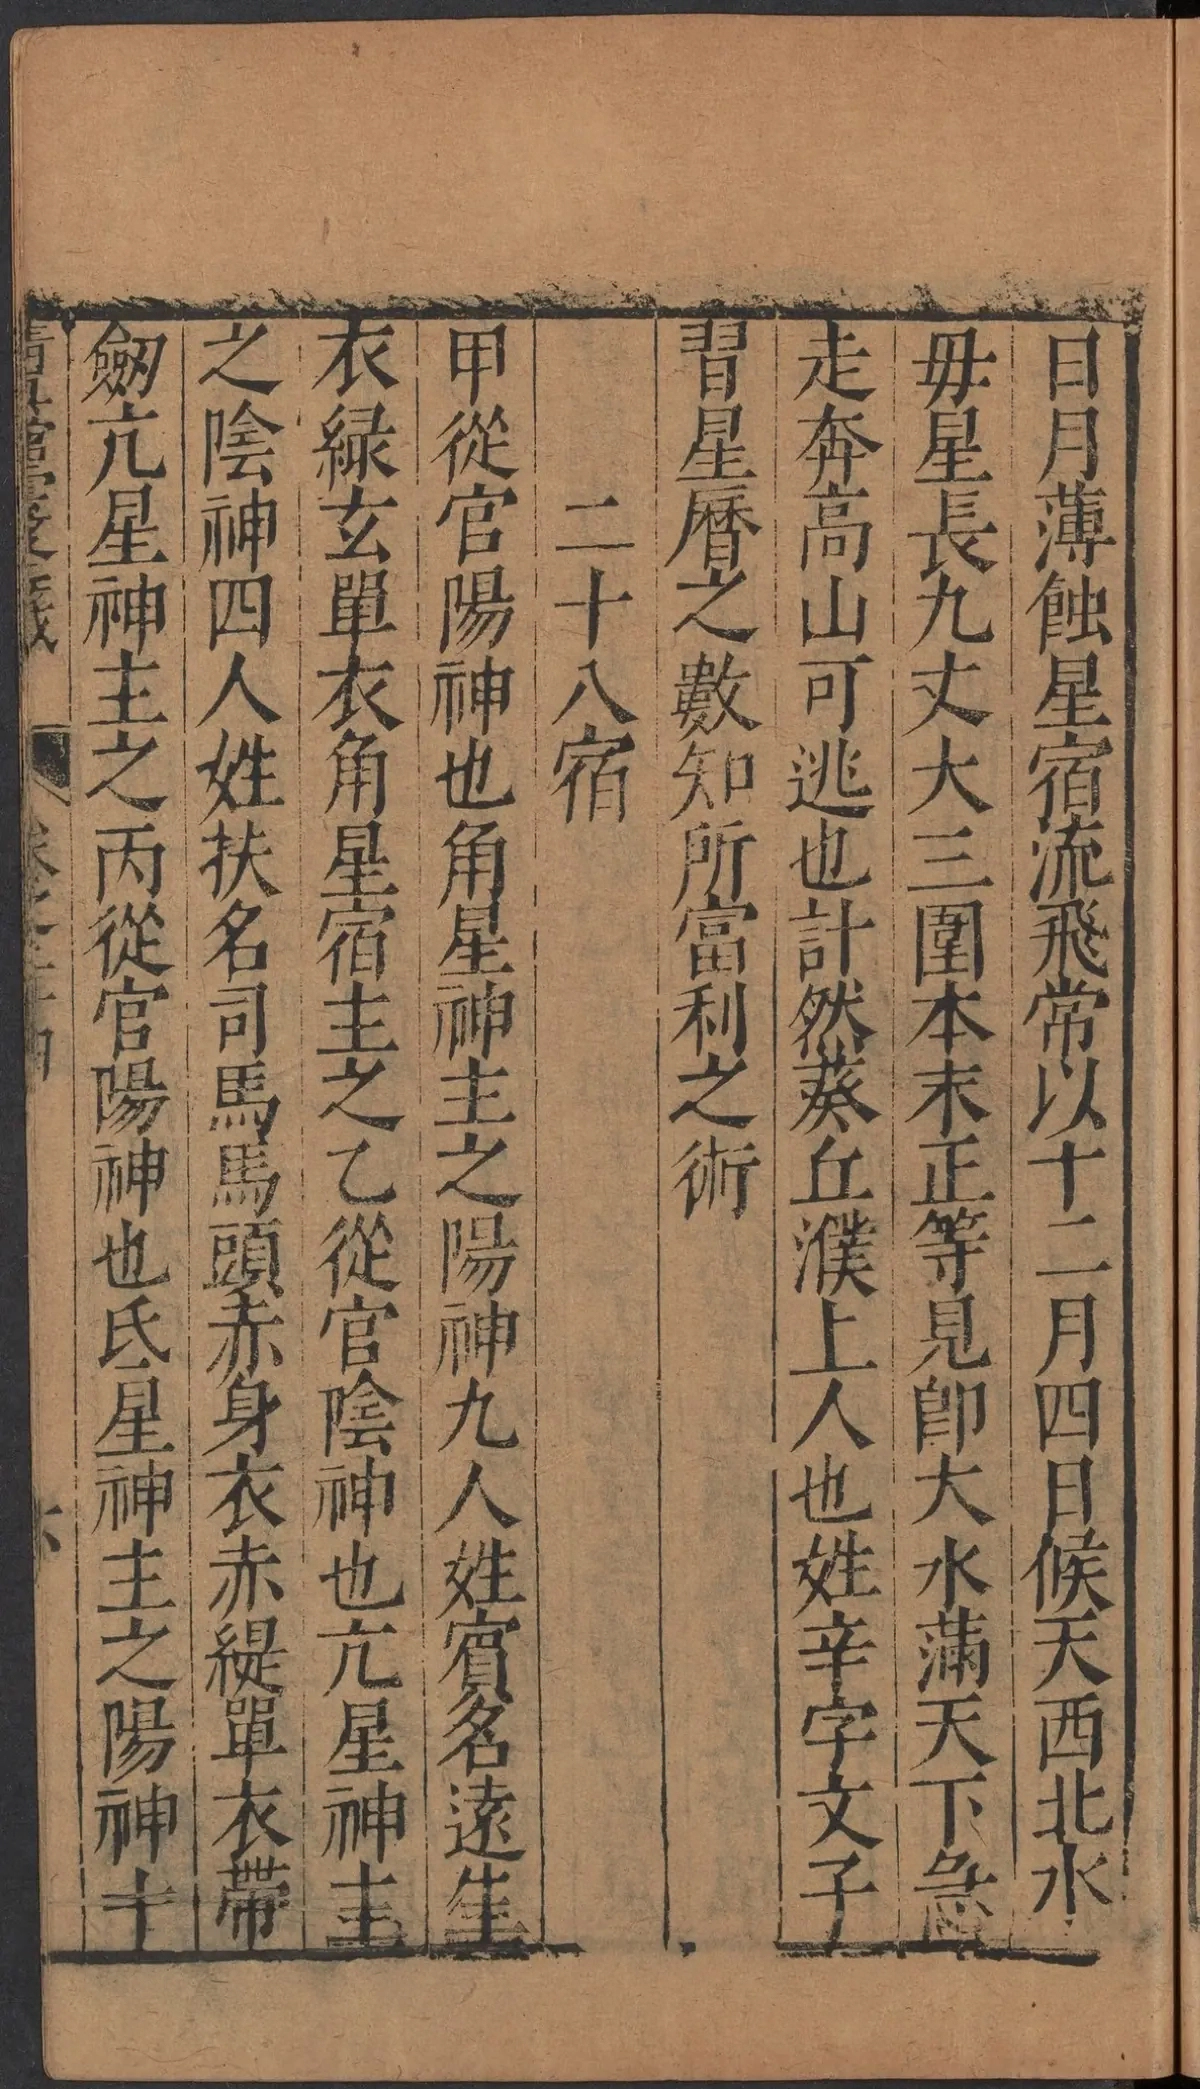 日月薄蝕星宿流飛常以十二月四日候天西北水
毋星長九丈大三圍本末正等見即大水滿天下急
走奔高山可逃也計然葵丘濮上人也姓辛字文子
習星曆之數知所富利之術
二十八宿
甲從官陽神也角星神主之陽神九人姓賓名遠生
衣綠玄單衣角星宿主之乙從官陰神也亢星神主
之陰神四人姓扶名司馬馬頭赤身衣赤緹單衣帶
劔亢星神主之丙從官陽神也氐星神主之陽神十